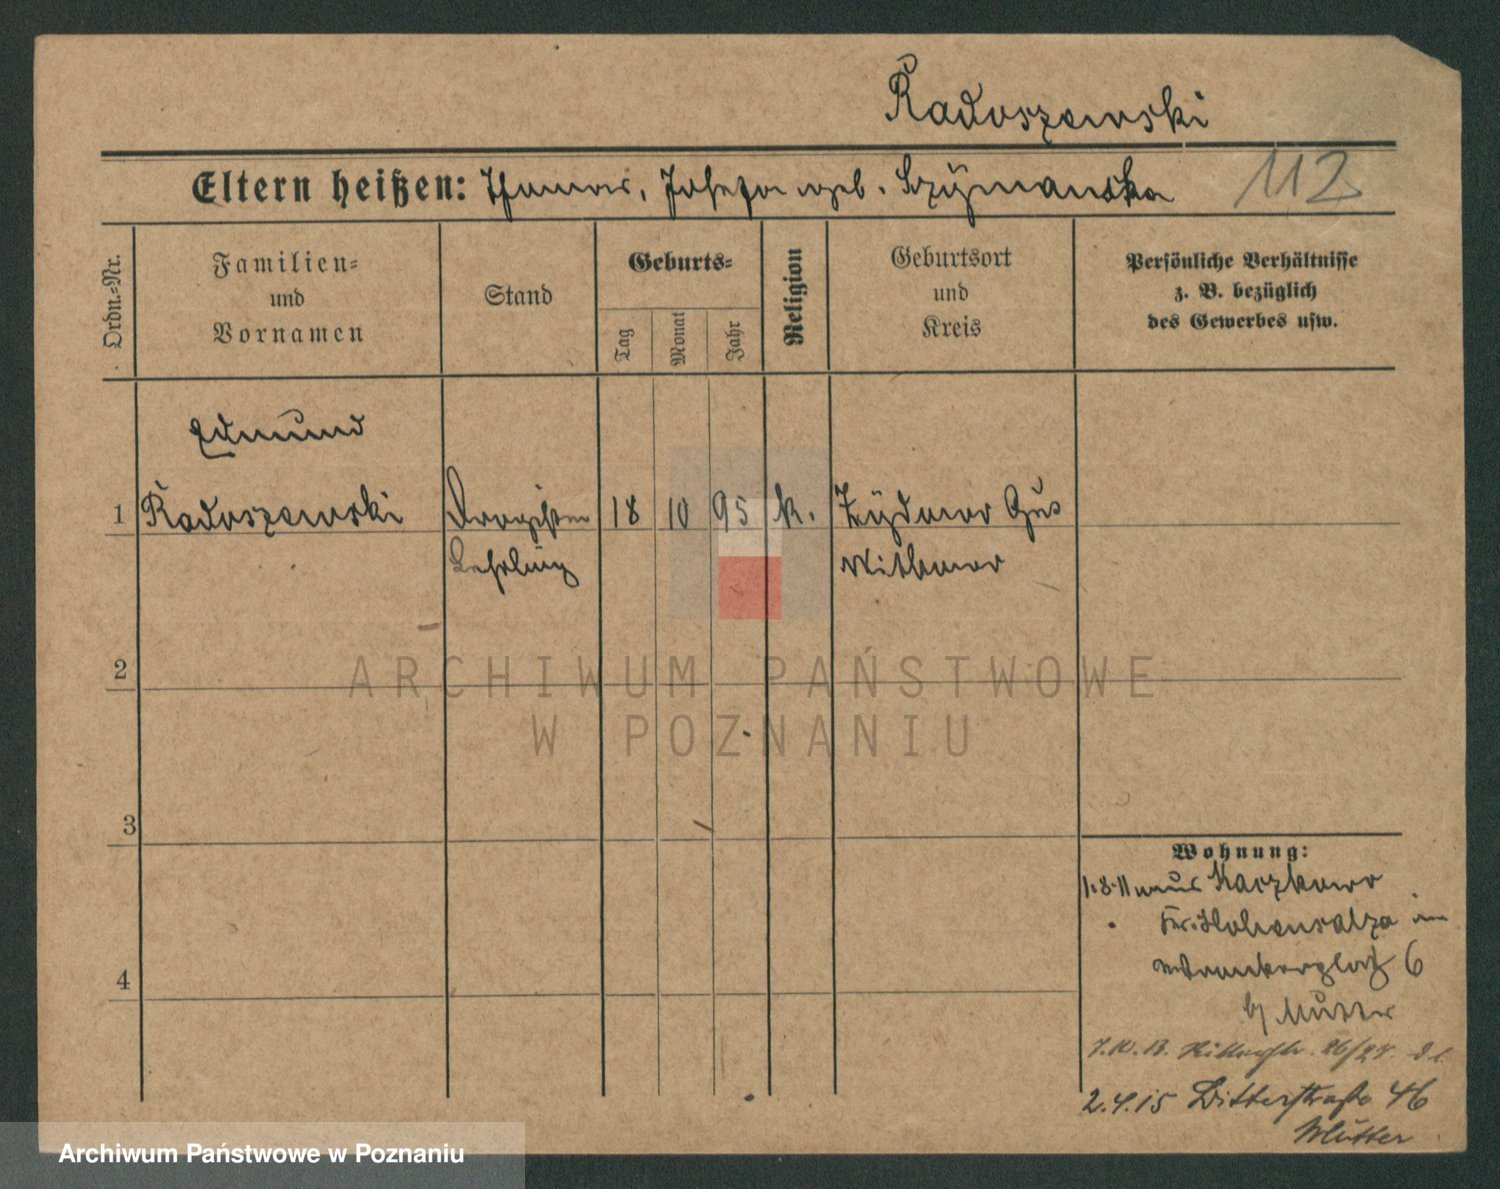 Radoszewski
Eltern heißen: Thomas, Josefa geb. Szymanska
112
Ordn.-Nr.
Familien-
und
Vornamen
Stand
Geburts-
Tag
Monat
Jahr
Religion
Geburtsort
und
Kreis
Persönliche Verhältnisse
z. B. bezüglich
des Gewerbes usw.
Edmund
1 Radoszewski Drogisten 18 10 95 k. Zydowo Gus
Lehrling Witkowo
2
ARCHIWUM PAŃSTWOWE
W POZNANIU
3
Wohnung:
1.8.11 aus Kaczkowo
Kr. Hohensalza in
6
b/ Mutter
7.10.13. 26/27.
2.4.15 Ritterstraße 46
Mutter
4
Archiwum Państwowe w Poznaniu